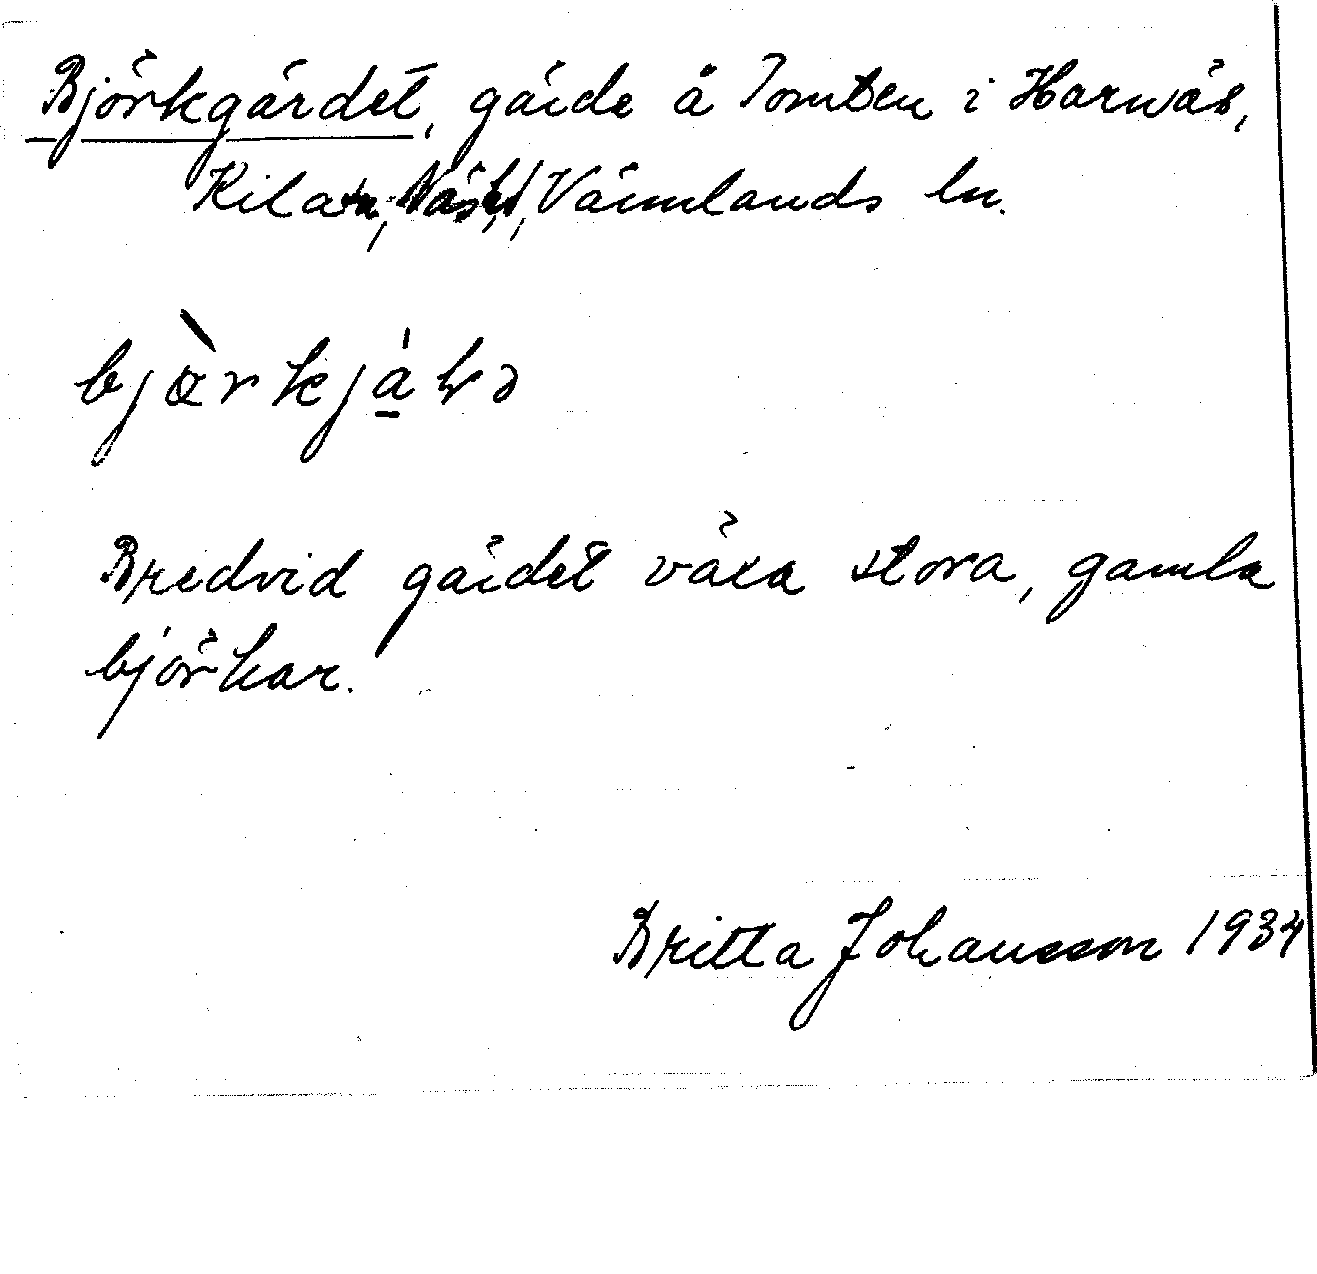 Björkgärdet, gärde å Tomten i Harnäs,
Kila sn, Näs hd, Värmlands ln.
Bredvid gärdet växa stora, gamla
björkar.
Britta Johansson 1934